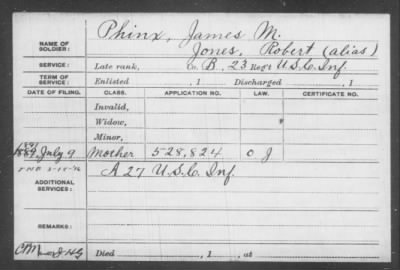 Phinx, James M.
NAME OF SOLDIER: Jones, Robert (alias)
SERVICE: Late rank, Co. B, 23 Reg't U.S.C. Inf.
TERM OF SERVICE: Enlisted , 1 Discharged , 1
DATE OF FILING. CLASS. APPLICATION NO. LAW. CERTIFICATE NO.
Invalid,
Widow,
Minor,
July 9 Mother 528,824 O J
ADDITIONAL SERVICES: A 27 U.S.C. Inf.
REMARKS:
Died , 1 , at